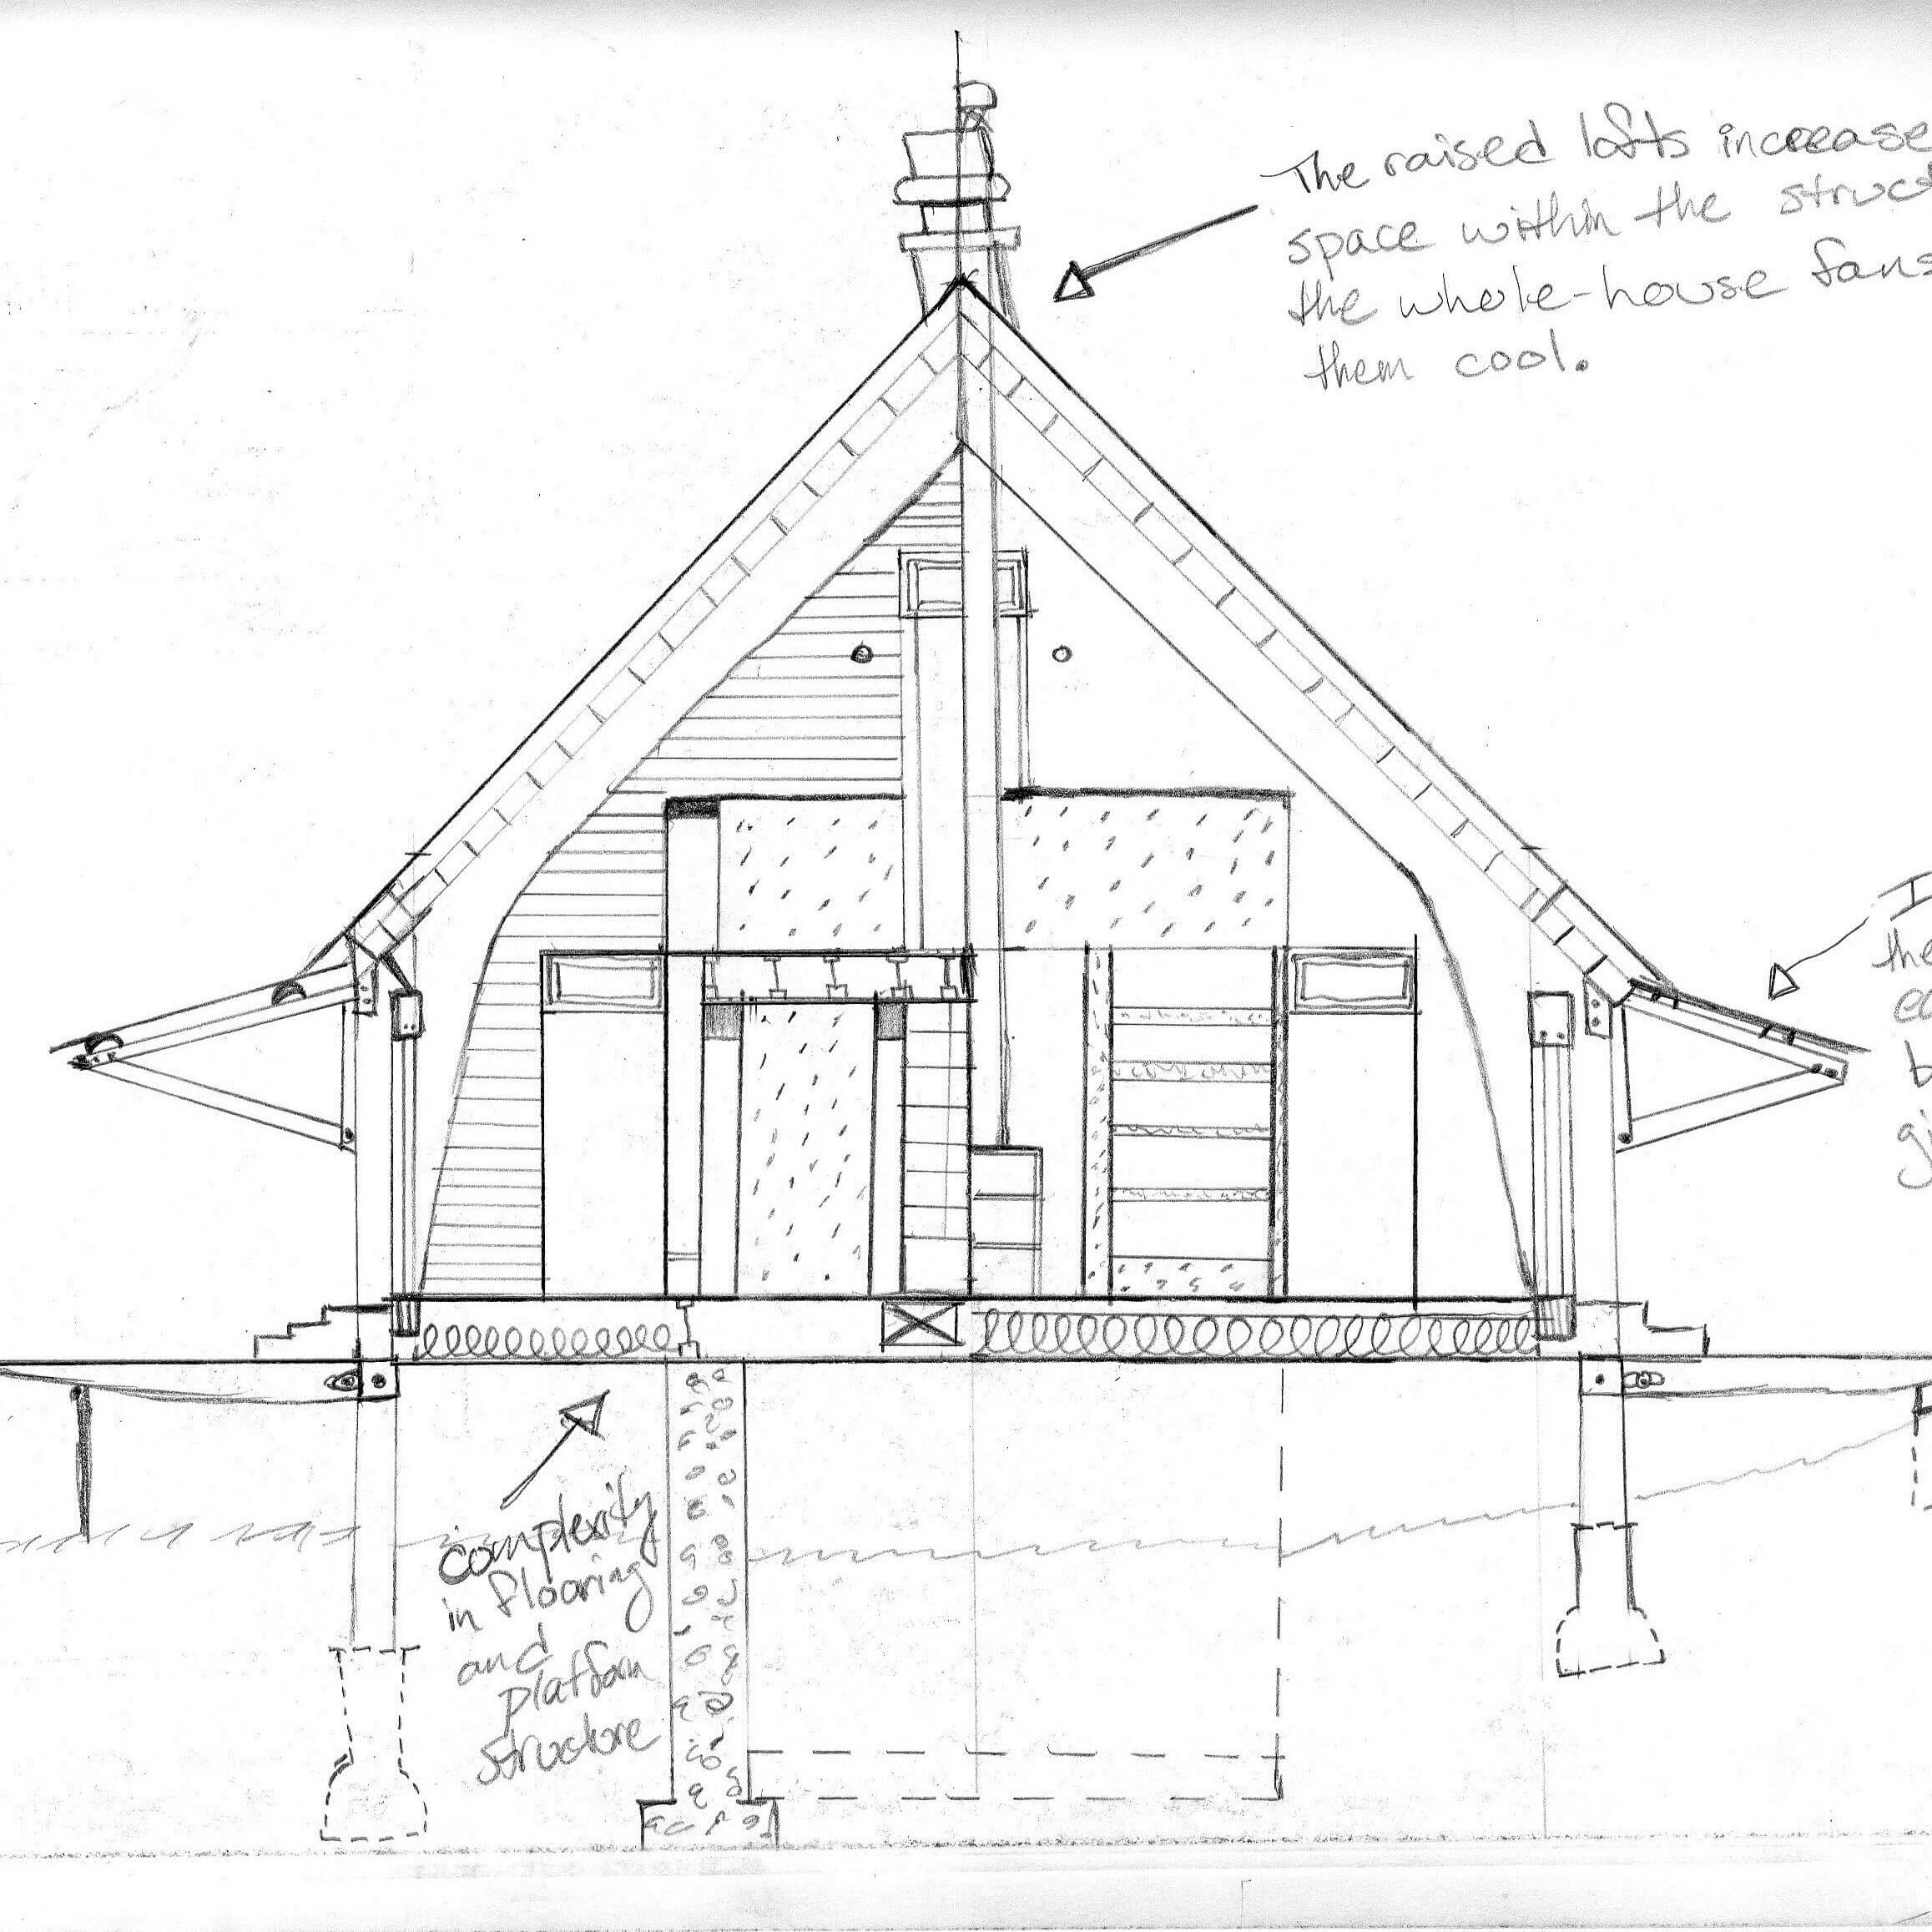 The raised lofts increase
space within the struct
the whole-house fans
them cool.
I
the
b
complexity
in flooring
and
platform
structure